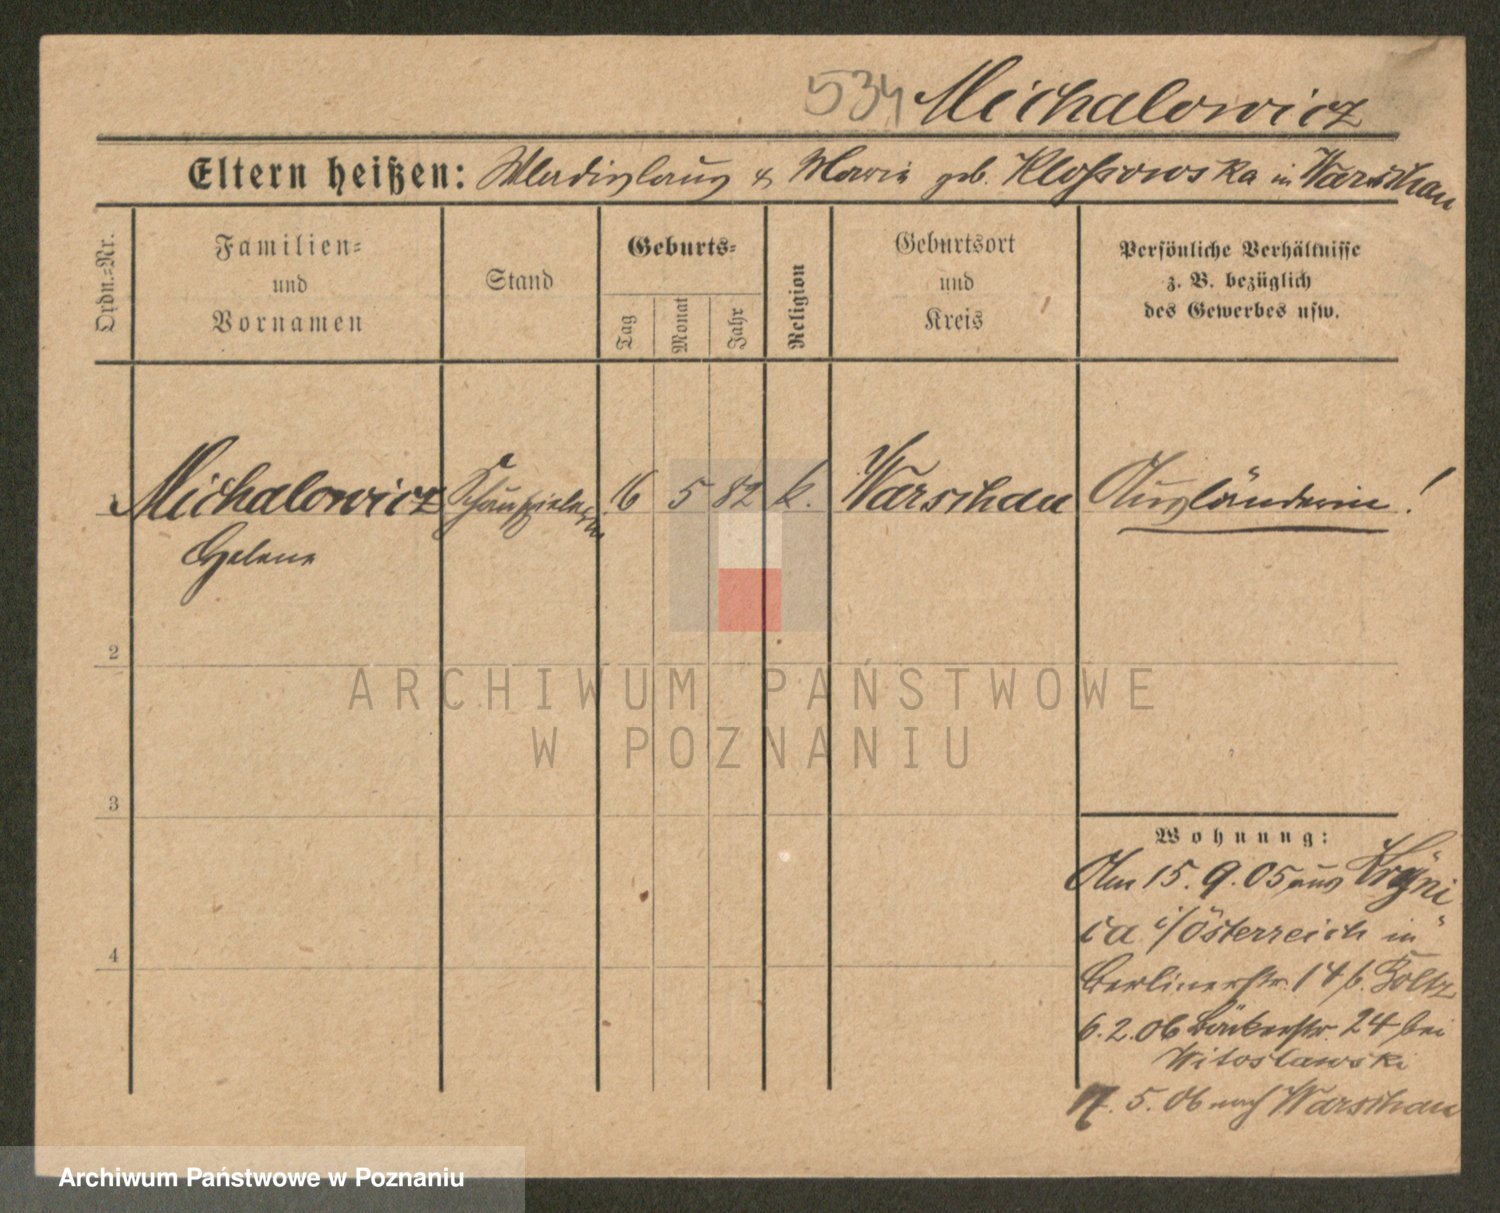 534 Michalowicz
Eltern heißen: Wladislaus & Marie geb. Kloßowska in Warschau
Ordn.=Nr.
Familien=
und
Vornamen
Stand
Geburts=
Tag
Monat
Jahr
Religion
Geburtsort
und
Kreis
Persönliche Verhältnisse
z. B. bezüglich
des Gewerbes usw.
1 Michalowicz Schauspielerin 16 5 82 k. Warschau Ausländerin!
Helene
2
ARCHIWUM PAŃSTWOWE
W POZNANIU
3
Wohnung:
Am 15.9.05 aus Kryni
ca i/Österreich in
4
Berlinerstr. 14 b. Boltz
6.2.06 Bäckerstr. 24 bei
Witoslawski
5.06 nach Warschau
Archiwum Państwowe w Poznaniu